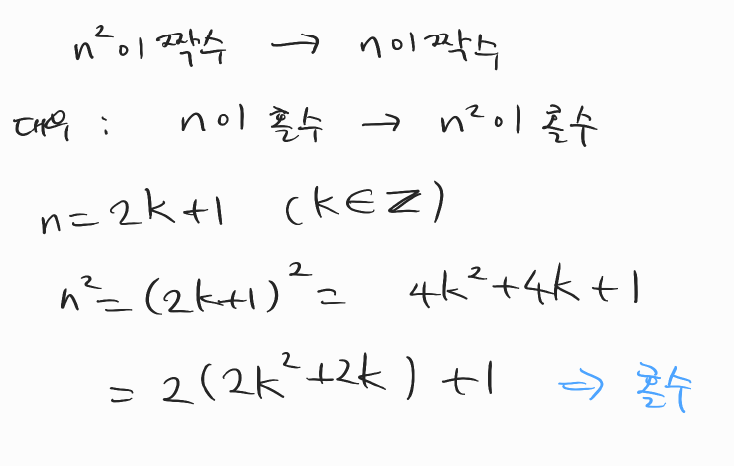 n²이 짝수 → n이 짝수
대우 : n이 홀수 → n²이 홀수
n=2k+1 (k∈ℤ)
n²=(2k+1)²= 4k²+4k+1
=2(2k²+2k)+1 ⇒ 홀수